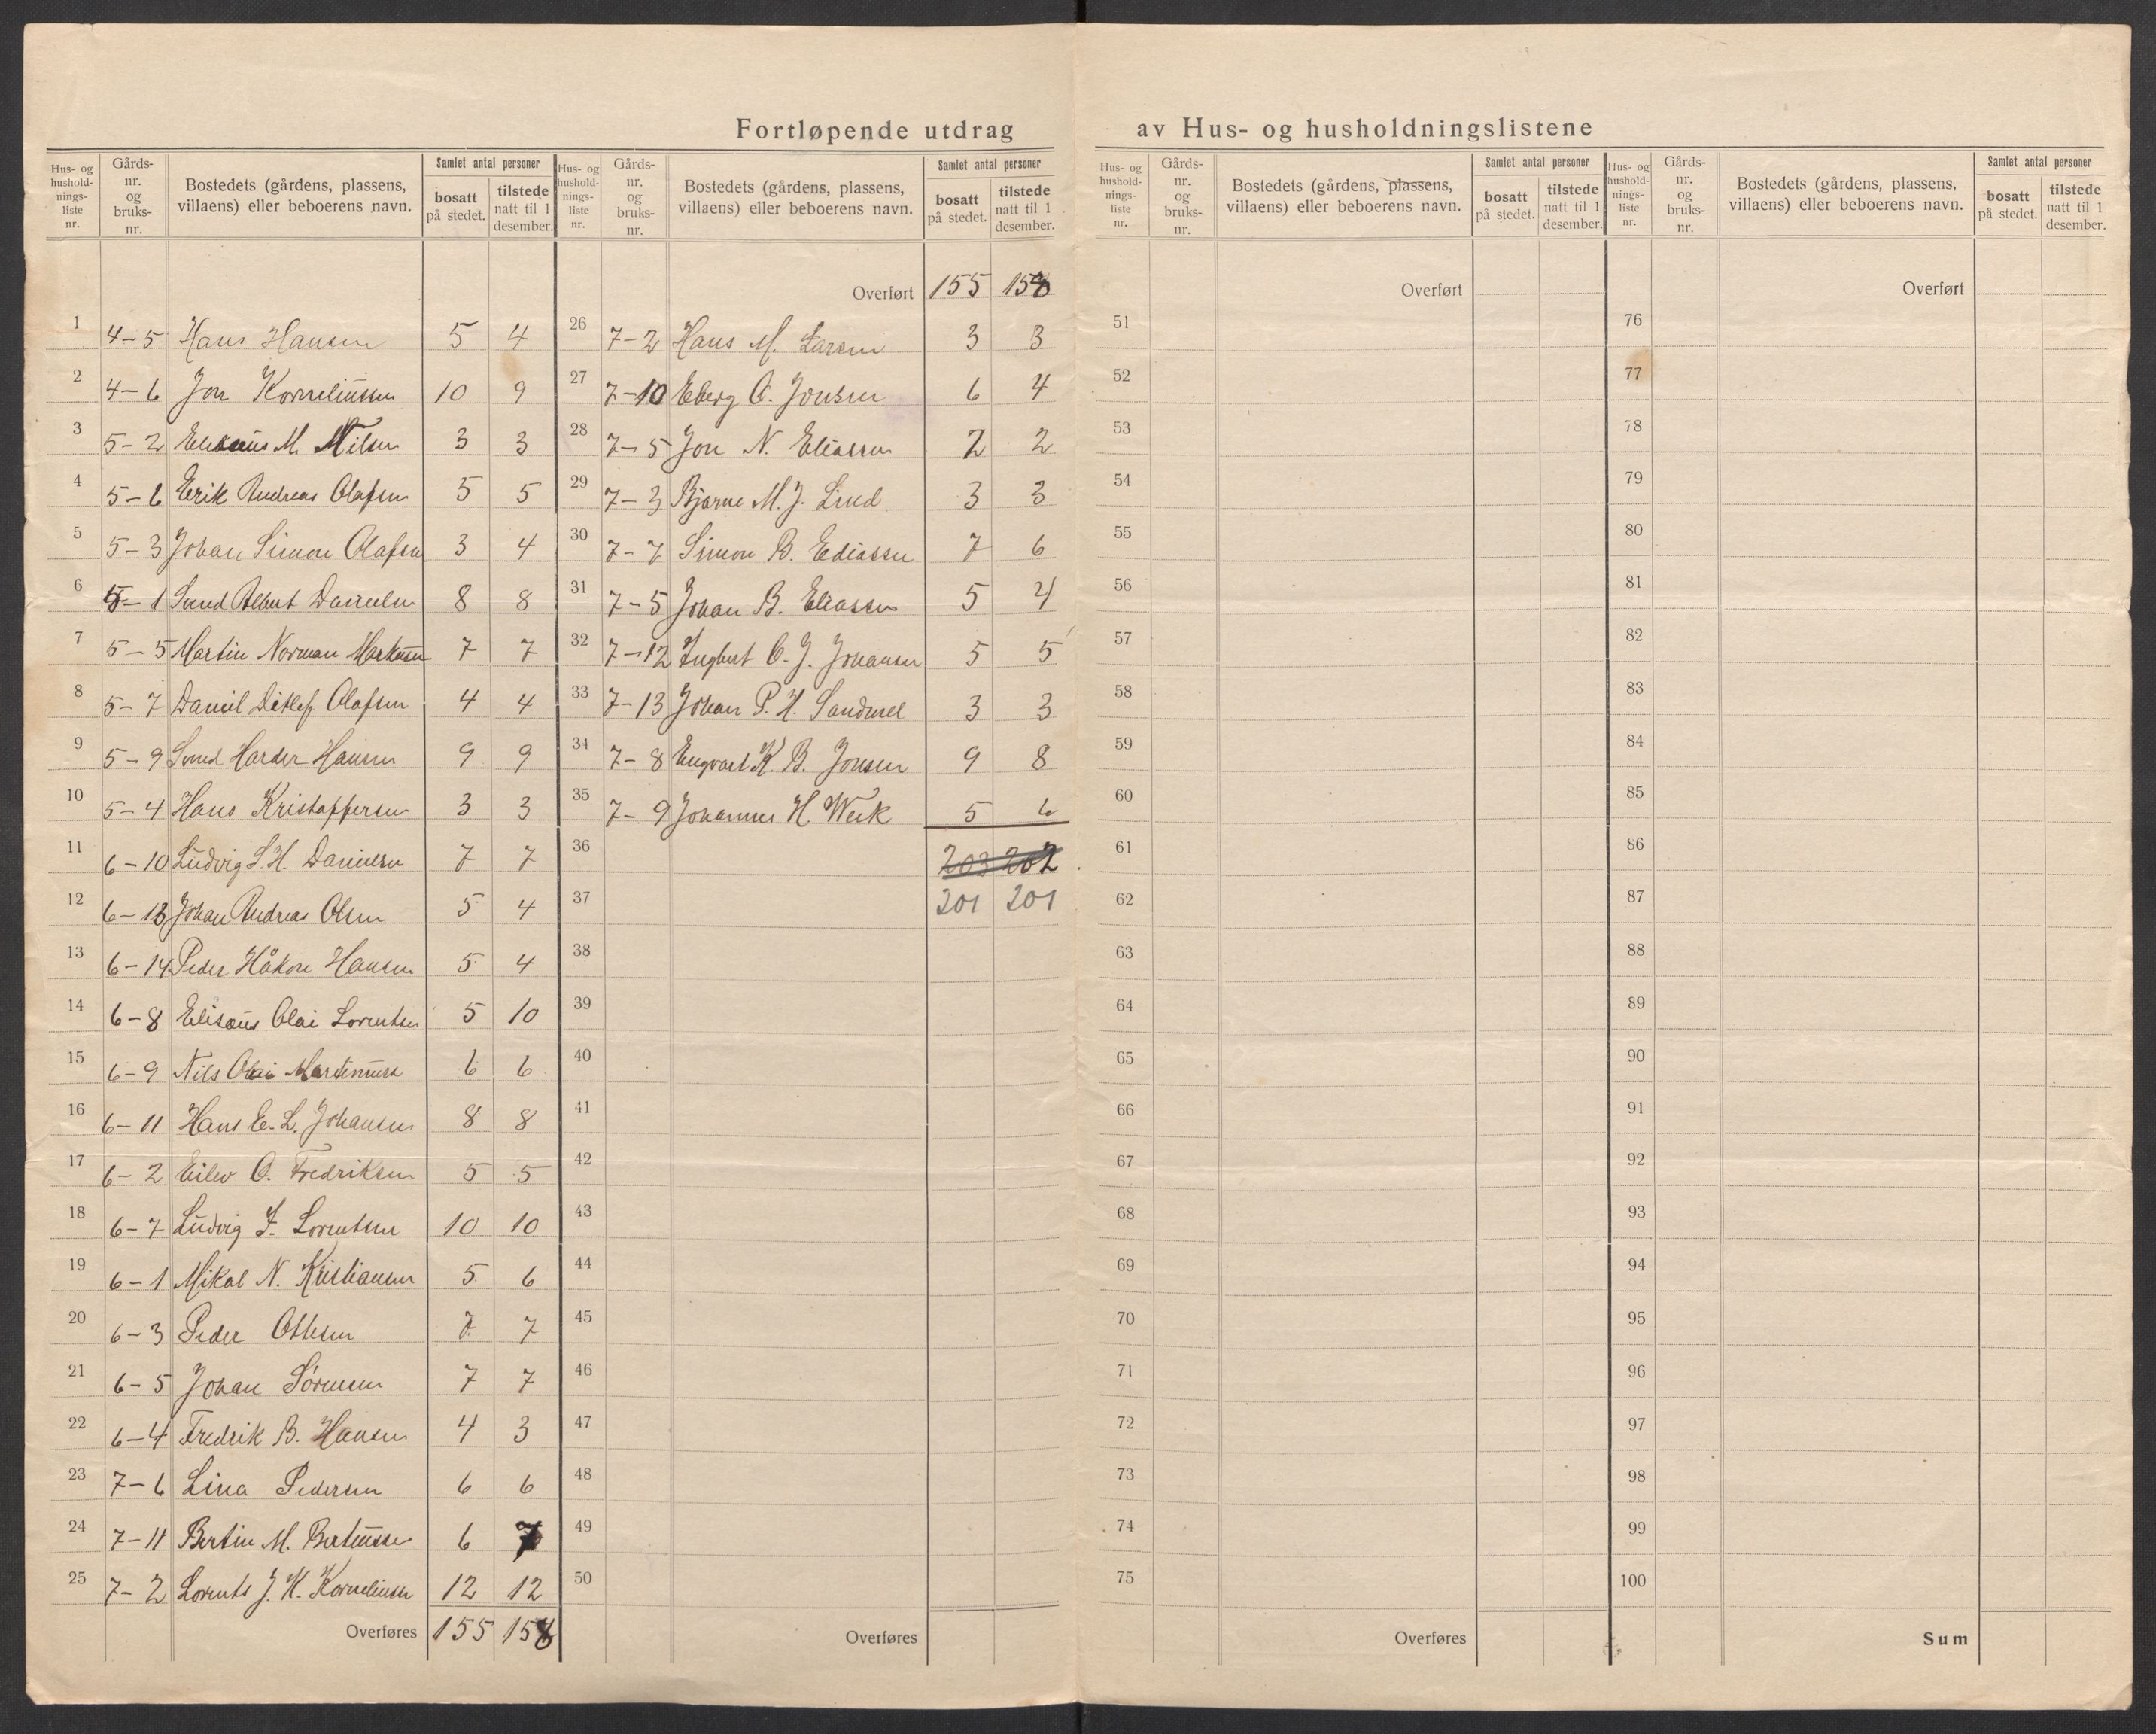 Fortløpende utdrag av Hus- og husholdningslistene
Hus- og husholdnings- liste nr. | Gårds- nr. og bruks- nr. | Bostedets (gårdens, plassens, villaens) eller beboerens navn. | Samlet antal personer bosatt på stedet. | tilstede natt til 1 desember.
1 4-5 Hans Hansen 5 4
2 4-6 Jon Korneliussen 10 9
3 5-2 Elisæus M. Nilsen 3 3
4 5-6 Erik Andreas Olafsen 5 5
5 5-3 Johan Simon Olafsen 3 4
6 5-1 Svend Albert Danielsen 8 8
7 5-5 Martin Norman Markussen 7 7
8 5-7 Daniel Ditlef Olafsen 4 4
9 5-9 Svend Harder Hansen 9 9
10 5-4 Hans Kristoffersen 3 3
11 6-10 Ludvig S.H. Danielsen 7 7
12 6-13 Johan Andreas Olsen 5 4
13 6-14 Peder Håkon Hansen 5 4
14 6-8 Elisæus Olai Lorentsen 5 10
15 6-9 Nils Olai 6 6
16 6-11 Hans E. L. Johansen 8 8
17 6-2 Eilev O. Fredriksen 5 5
18 6-7 Ludvig F. Lorentsen 10 10
19 6-1 Mikal N. Kristiansen 5 6
20 6-3 Peder Ottesen 7 7
21 6-5 Johan Sørensen 7 7
22 6-4 Fredrik B. Hansen 4 3
23 7-6 Lina Pedersen 6 6
24 7-11 Bertin M. 6 7
25 7-2 Lorents J. K. Korneliussen 12 12
Overføres 155 158
Hus- og husholdnings- liste nr. | Gårds- nr. og bruks- nr. | Bostedets (gårdens, plassens, villaens) eller beboerens navn. | Samlet antal personer bosatt på stedet. | tilstede natt til 1 desember.
Overført 155 158
26 7-2 Hans M. Larsen 3 3
27 7-10 Eberg O. Jonsen 6 4
28 7-5 Jon N. Eliassen 2 2
29 7-3 Bjarne M. J. Lind 3 3
30 7-7 Simon B. Ediassen 7 6
31 7-5 Johan B. Eliassen 5 4
32 7-12 Ingbert O. J. Johansen 5 5
33 7-13 Johan P. H. 3 3
34 7-8 Engvart K. B. Jonsen 9 8
35 7-9 Johannes H. 5 6
36 203 202
37 201 201
38
39
40
41
42
43
44
45
46
47
48
49
50
Overføres
Hus- og husholdnings- liste nr. | Gårds- nr. og bruks- nr. | Bostedets (gårdens, plassens, villaens) eller beboerens navn. | Samlet antal personer bosatt på stedet. | tilstede natt til 1 desember.
Overført
51
52
53
54
55
56
57
58
59
60
61
62
63
64
65
66
67
68
69
70
71
72
73
74
75
Overføres
Hus- og husholdnings- liste nr. | Gårds- nr. og bruks- nr. | Bostedets (gårdens, plassens, villaens) eller beboerens navn. | Samlet antal personer bosatt på stedet. | tilstede natt til 1 desember.
Overført
76
77
78
79
80
81
82
83
84
85
86
87
88
89
90
91
92
93
94
95
96
97
98
99
100
Sum